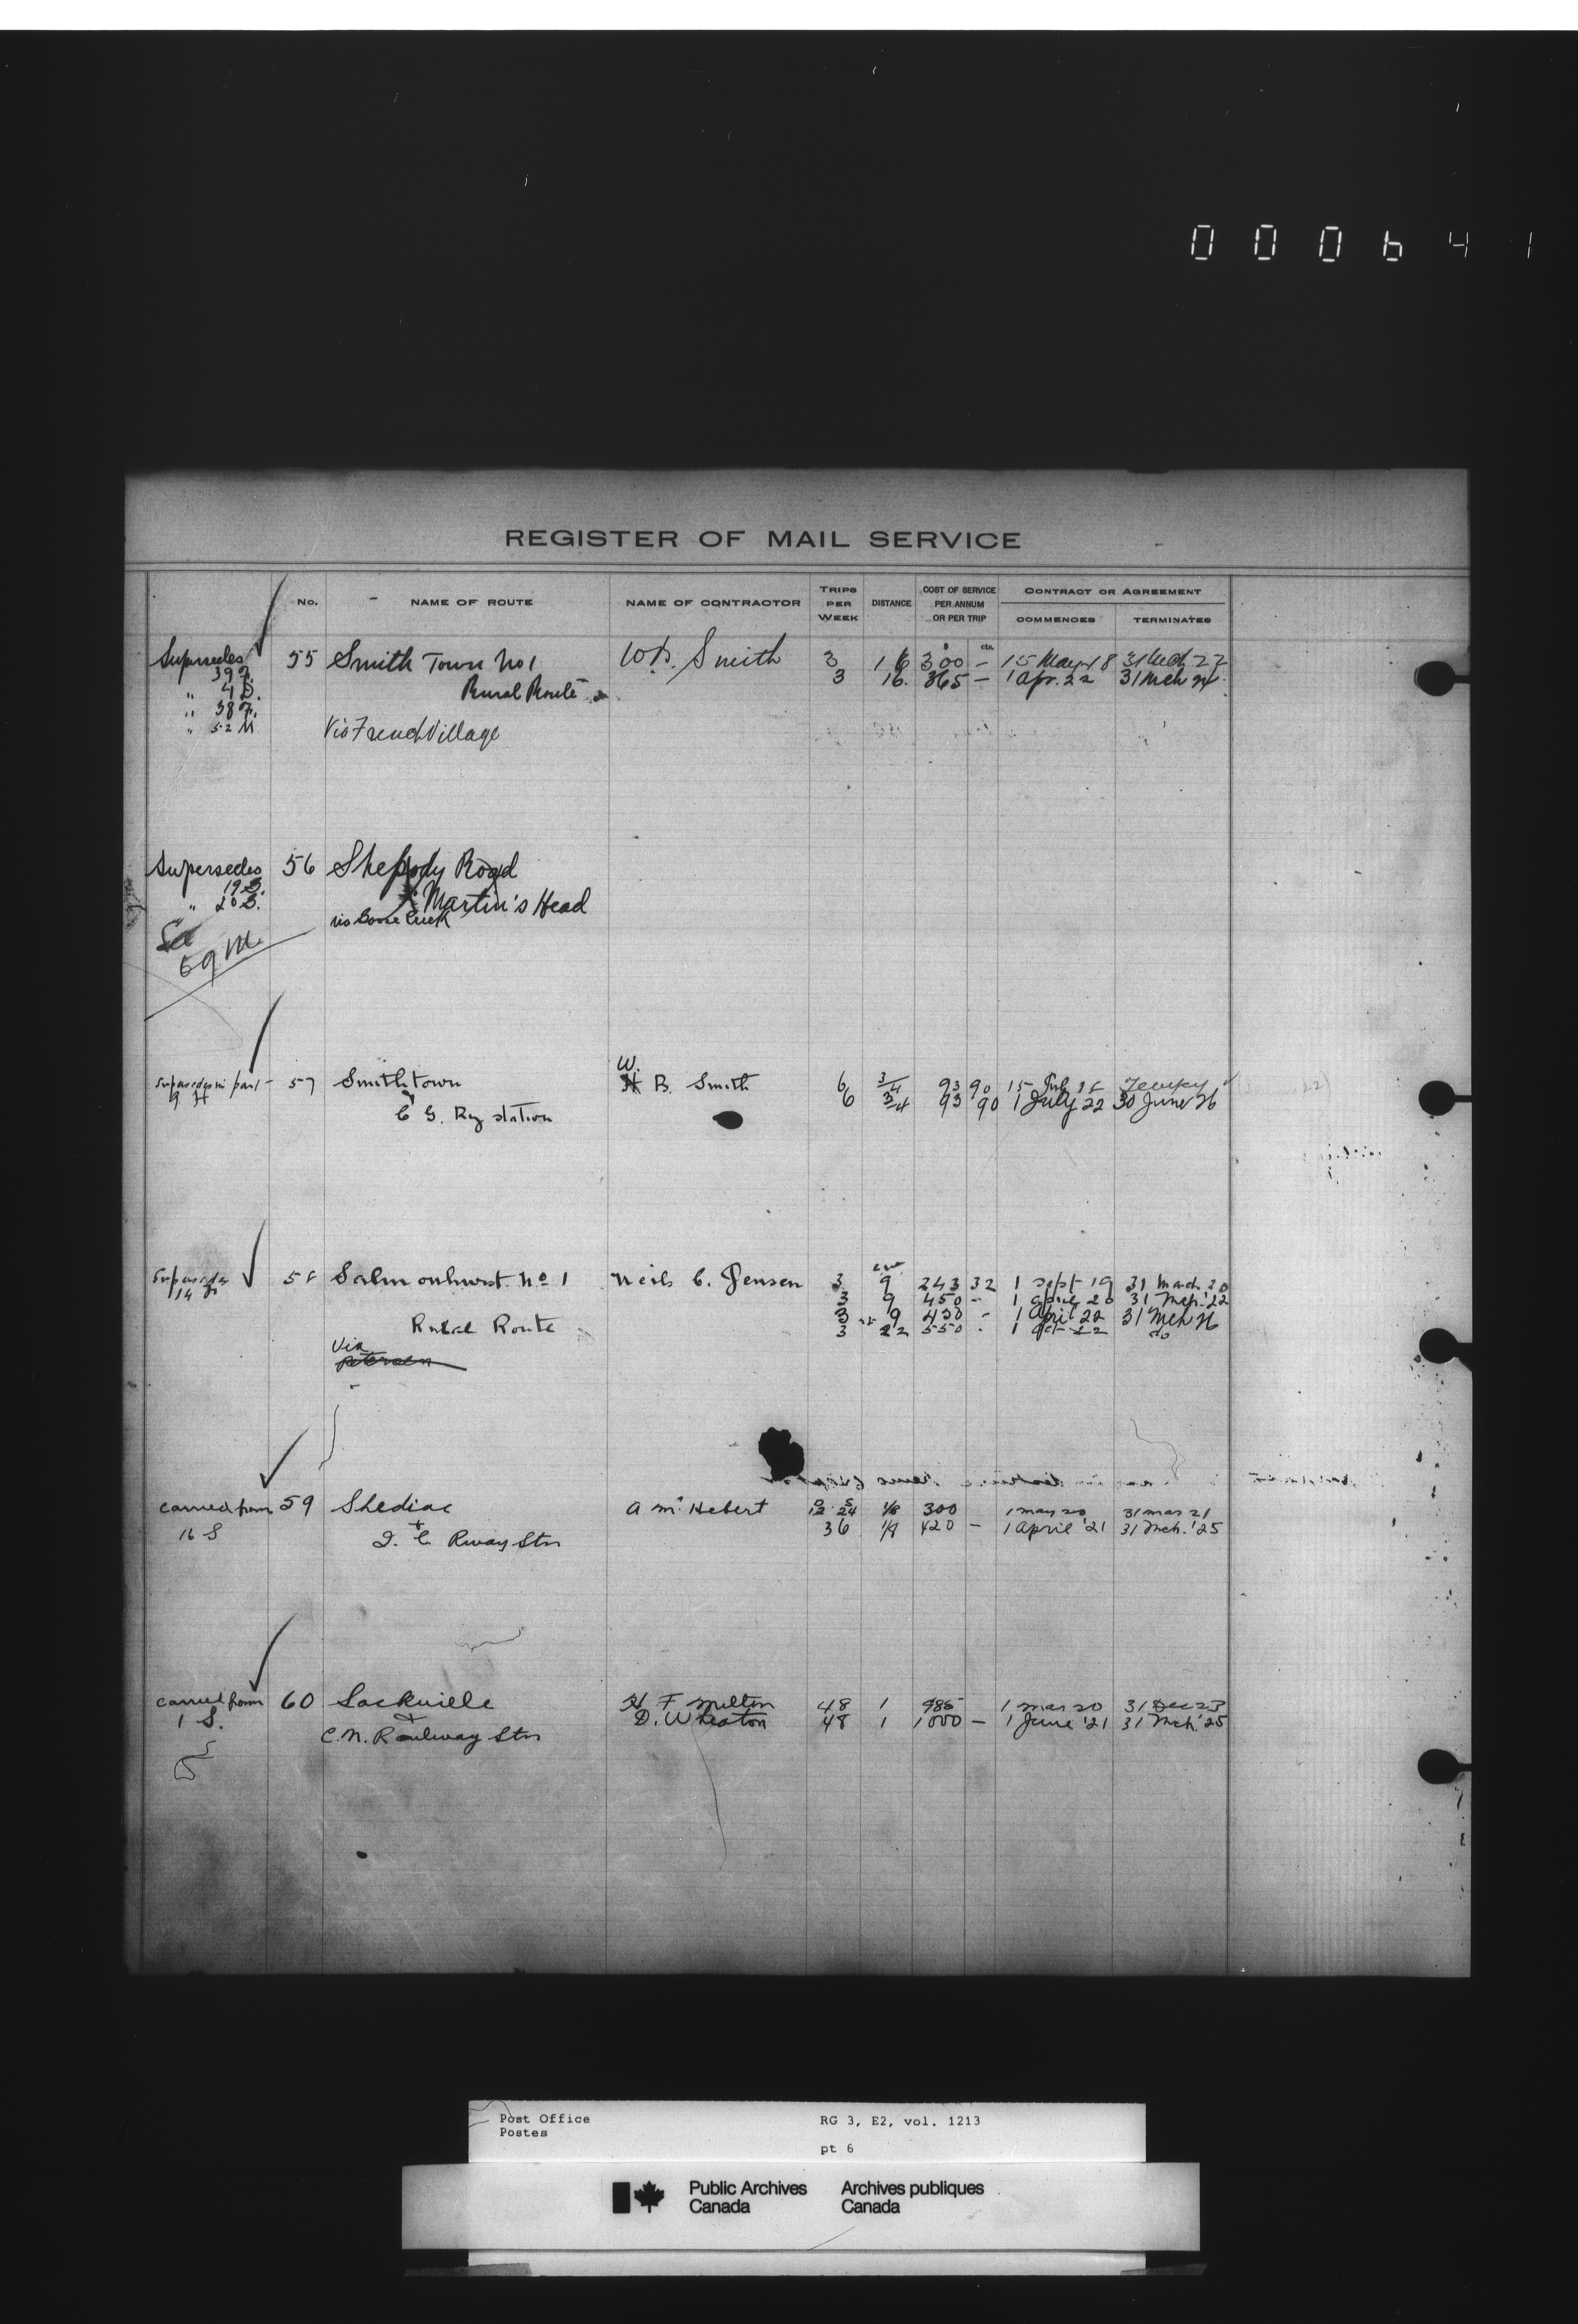 000641
REGISTER OF MAIL SERVICE
No. NAME OF ROUTE NAME OF CONTRACTOR TRIPS PER WEEK DISTANCE COST OF SERVICE PER ANNUM OR PER TRIP CONTRACT OR AGREEMENT
COMMENCES TERMINATES
$ cts.
Supersedes 55 Smith Town No 1 W.B. Smith 3 16 300 — 15 May 18 31 Mch 22
" 4 D. Rural Route 3 16. 365 — 1 Apr. 22 31 Mch 24
" 38 F.
" 52 M Via French Village
Supersedes 56 Shepody Road
19 S. & Martin's Head
" 20 S. via Goose Creek
See
59 M.
W.
Supersedes in part 57 Smithtown H B. Smith 6 3/4 93 90 15 Temp'y
9 H & 6 3/4 93 90 1 July 22 30 June 26
C G. Ry station
Supersedes 58 Salmonhurst No 1 Neils C. Jensen 3 9 243 32 1 Sept 19 31 March 20
14 3 9 450 - 1 April 20 31 Mch. '22
Rural Route 3 9 450 - 1 April 22 31 Mch 26
3 22 550 - 1 Oct 22 do
Via
Petersen
Carried from 59 Shediac A Mc Hebert 12 24 1/8 300 1 May 20 31 Mar 21
16 S & 36 1/8 420 — 1 April '21 31 Mch. '25
I. C Rway Stn
Carried from 60 Sackville H F Milton 48 1 985 1 Mar 20 31 Dec 23
1 S. & D. Wheaton 48 1 1000 — 1 June '21 31 Mch '25
C.N. Railway Stn
Post Office RG 3, E2, vol. 1213
Postes
pt 6
Public Archives Archives publiques
Canada Canada